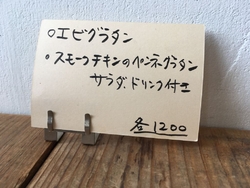 ○エビグラタン
•スモークチキンのペンネグラタン
サラダ、ドリンク付き
各1200